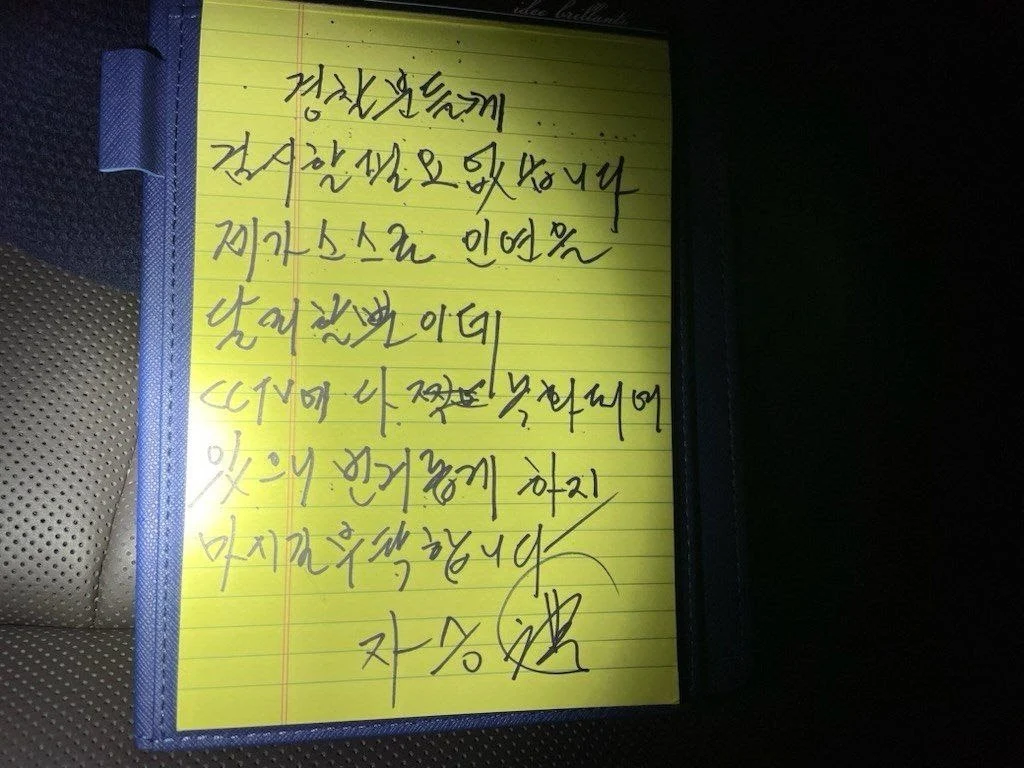 idée brillante
경찰분들께
검시할 필요 없습니다
제가 스스로 인연을
달리할 뿐인데
CCTV에 다 녹화되어
있으니 번거롭게 하지
마시길 부탁합니다
자승